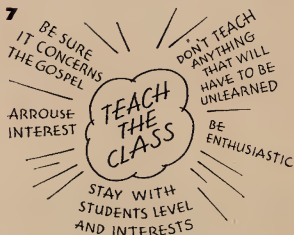 7
BE SURE
IT CONCERNS
THE GOSPEL
DON'T TEACH
ANYTHING
THAT WILL
HAVE TO BE
UNLEARNED
ARROUSE
INTEREST
TEACH
THE
CLASS
BE
ENTHUSIASTIC
STAY WITH
STUDENTS LEVEL
AND INTERESTS